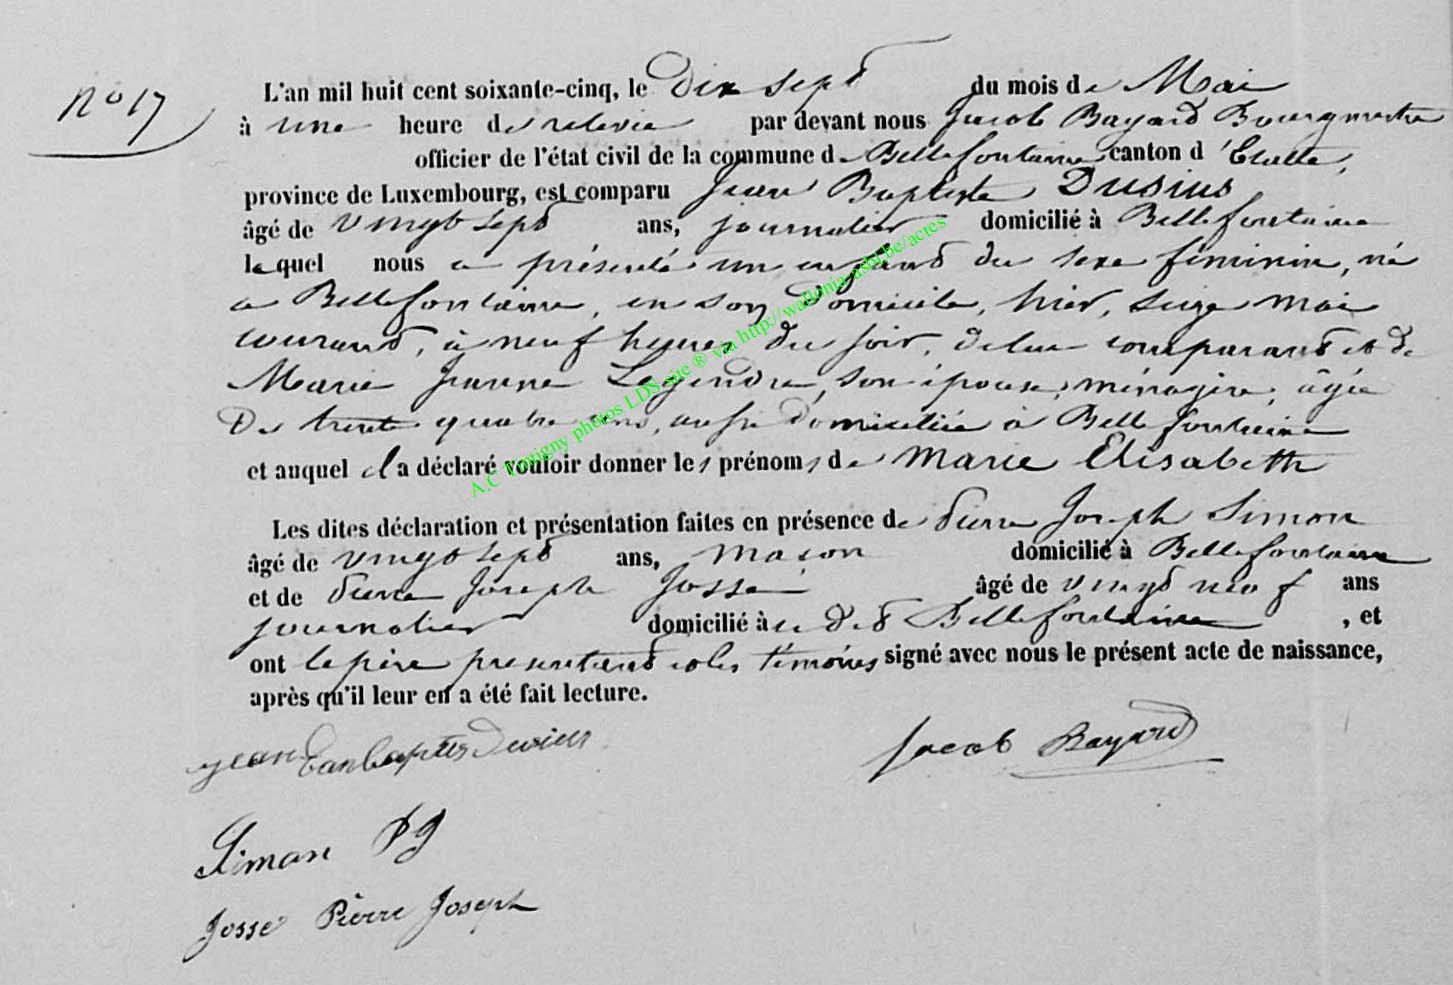 No 17
L'an mil huit cent soixante-cinq, le Dix sept du mois de Mai
à une heure de relevée par devant nous Jacob Bayard Bourgmestre
officier de l'état civil de la commune de Bellefontaine canton d'Etalle,
province de Luxembourg, est comparu Jean Baptiste Dusius
âgé de vingt sept ans, journalier domicilié à Bellefontaine
lequel nous a présenté un enfant du sexe féminin, né
à Bellefontaine, en son domicile, hier, seize mai
courant, à neuf heures du soir, de lui comparant et de
Marie Jeanne Legendre, son épouse, ménagère, âgée
De trente quatre ans, aussi domiciliée à Bellefontaine
et auquel il a déclaré vouloir donner les prénoms de Marie Elisabeth
Les dites déclaration et présentation faites en présence de Pierre Joseph Simon
âgé de vingt sept ans, maçon domicilié à Bellefontaine
et de Pierre Joseph Josse âgé de vingt neuf ans
journalier domicilié à Bellefontaine, et
ont le père présentant et les témoins signé avec nous le présent acte de naissance,
après qu'il leur en a été fait lecture.
jean Dusius
Jacob Bayard
Simon PJ
Josse Pierre Joseph
A.C Tintigny photos LDS site ® via http://wallonia-asbl.be/actes